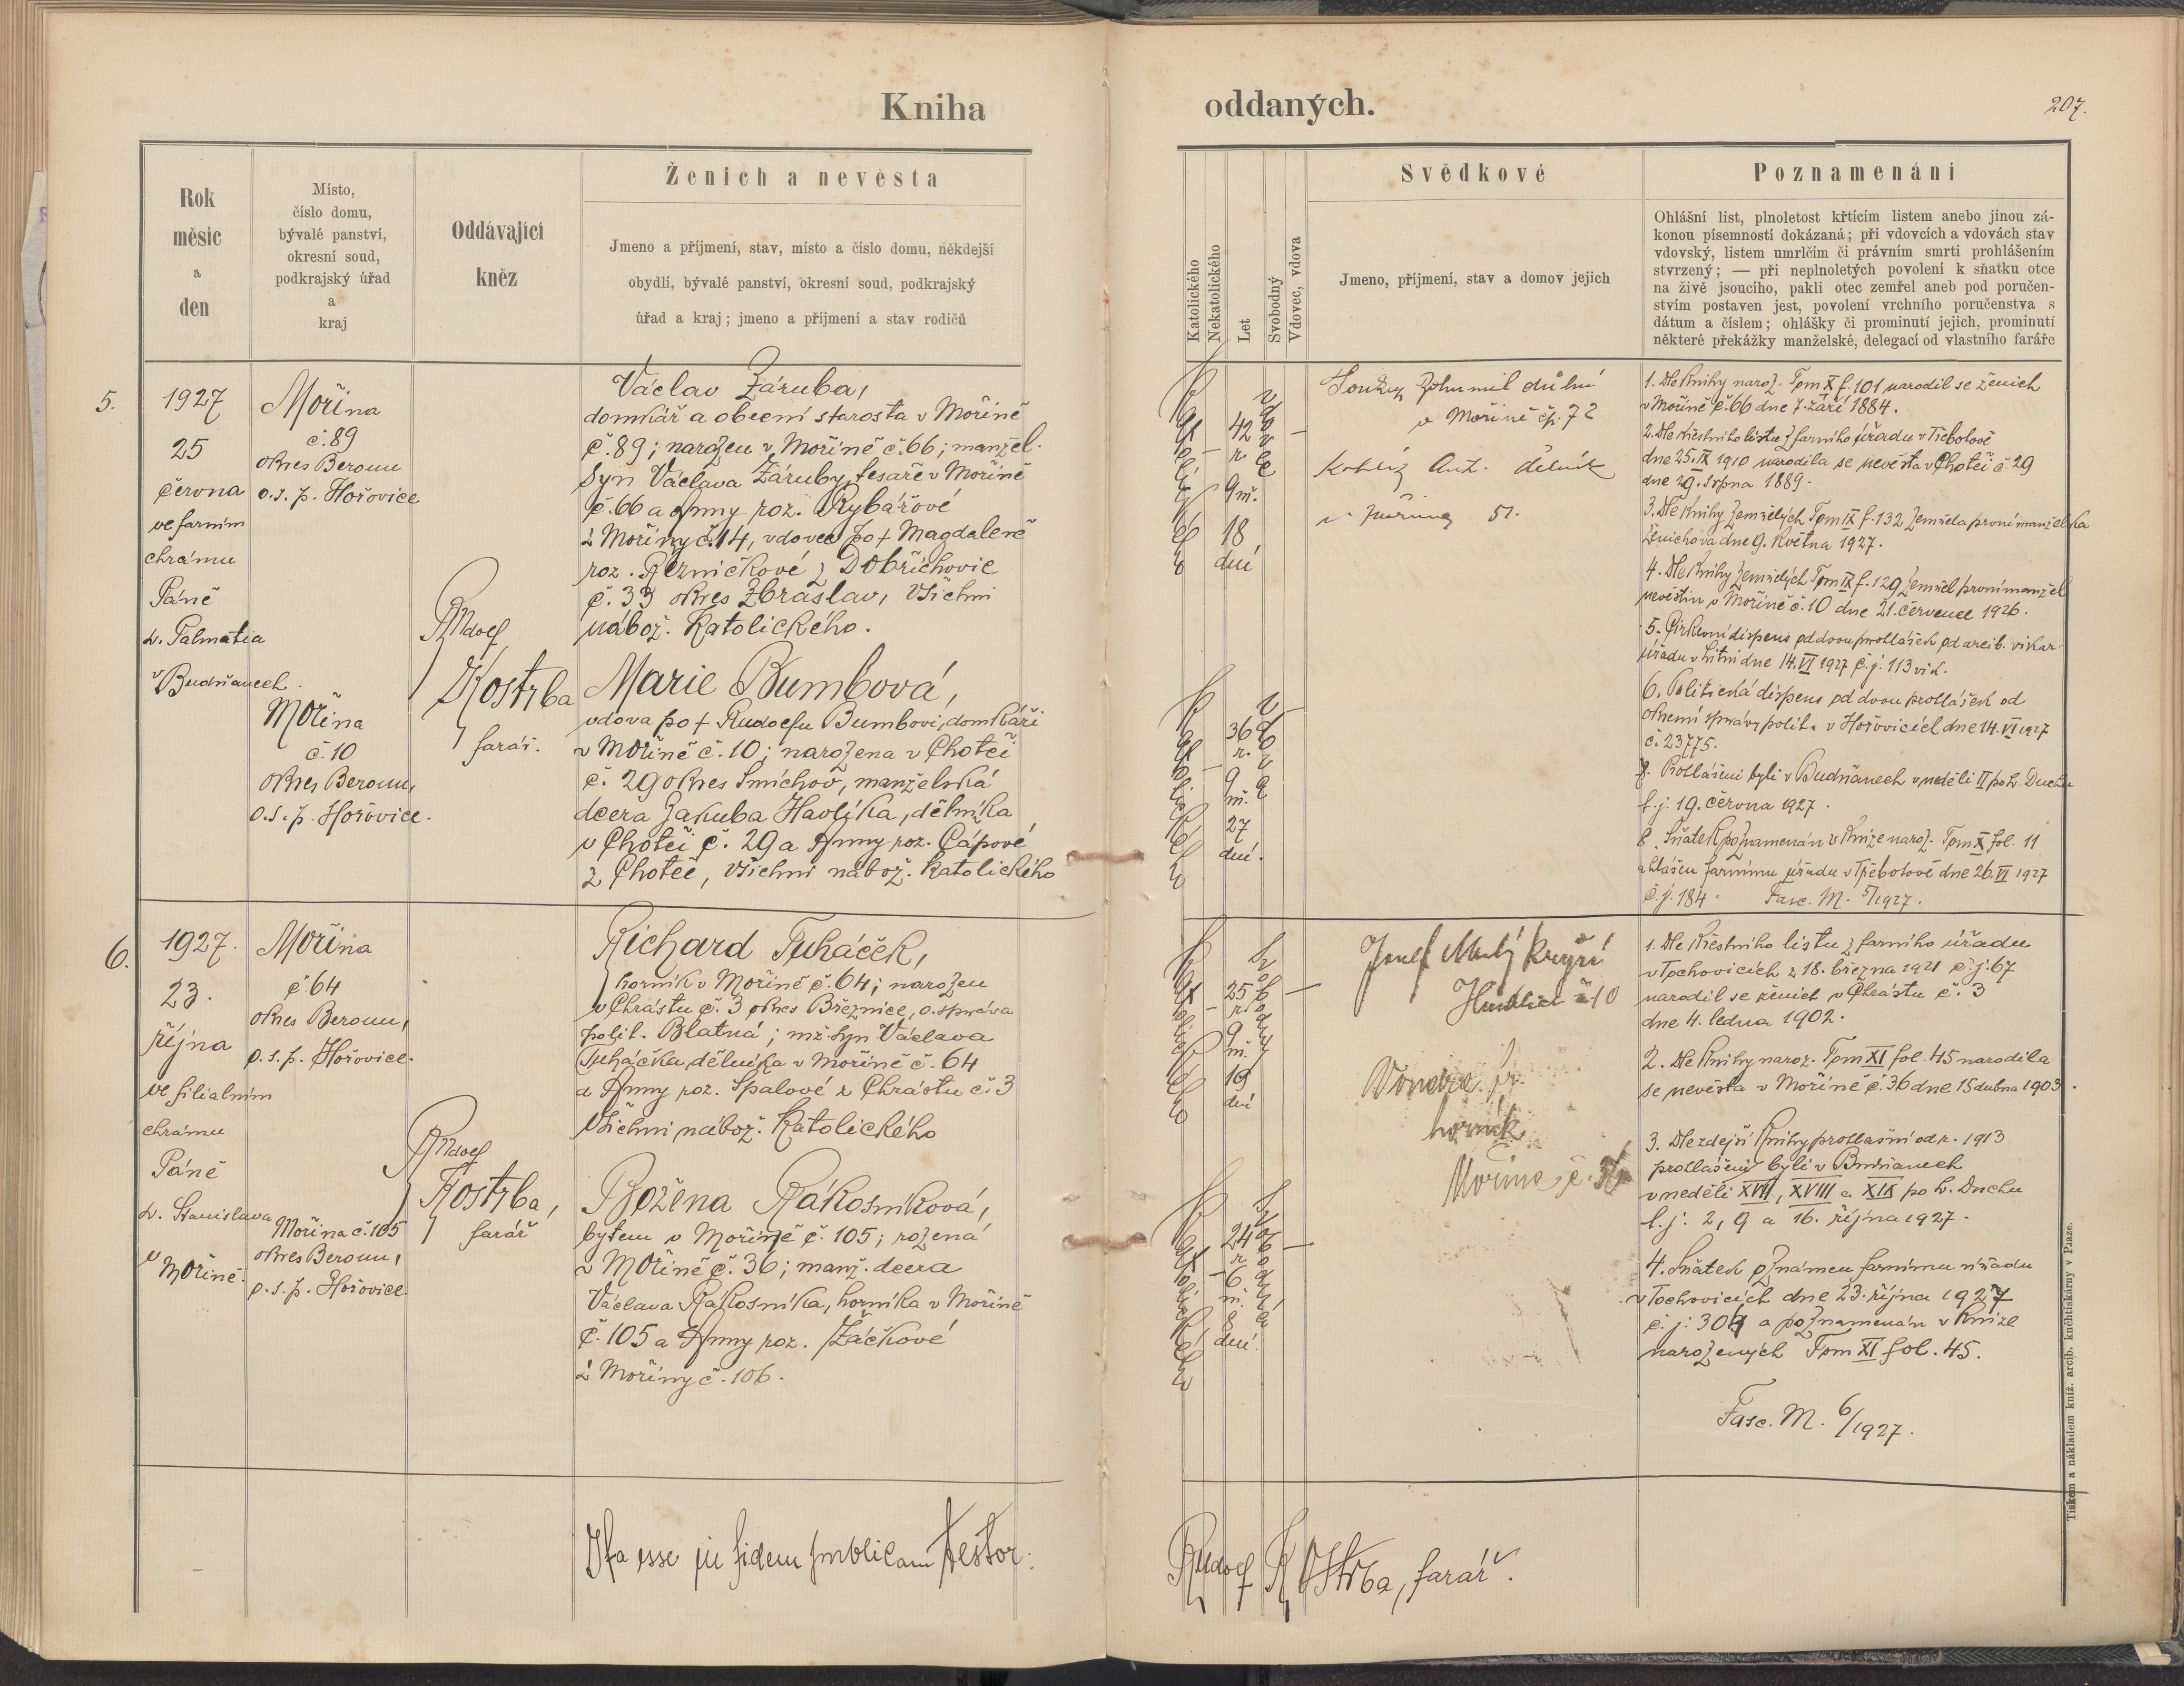 Kniha
oddaných.
207.
Rok
měsíc
a
den
Místo,
číslo domu,
bývalé panství,
okresní soud,
podkrajský úřad
a
kraj
Oddávající
kněz
Ženich a nevěsta
Jmeno a příjmení, stav, místo a číslo domu, někdejší
obydlí, bývalé panství, okresní soud, podkrajský
úřad a kraj; jmeno a příjmení a stav rodičů
Katolického
Nekatolického
Let
Svobodný
Vdovec, vdova
Svědkové
Jmeno, příjmení, stav a domov jejich
Poznamenání
Ohlášní list, plnoletost křtícím listem anebo jinou zá-
konou písemností dokázaná; při vdovcích a vdovách stav
vdovský, listem umrlčím či právním smrti prohlášením
stvrzený; — při neplnoletých povolení k sňatku otce
na živě jsoucího, pakli otec zemřel aneb pod poručen-
stvím postaven jest, povolení vrchního poručenstva s
dátum a číslem; ohlášky či prominutí jejich, prominutí
některé překážky manželské, delegací od vlastního faráře
5.
1927
25
června
ve farním
chrámu
Páně
sv. Palmatia
v Budňanech.
Mořina
č. 89
okres Beroun
o. s. p. Hořovice
Mořina
č. 10
okres Beroun,
o. s. p. Hořovice.
Rudolf
Kostrba
farář.
Václav Záruba,
domkář a obecní starosta v Mořině
č. 89; narozen v Mořině č. 66; manžel.
syn Václava Záruby, tesaře v Mořině
č. 66 a Anny roz. Rybářové
z Mořiny č. 14, vdovec po † Magdaleně
roz. Řezníčkové z Dobřichovic
č. 33 okres Zbraslav, všichni
nábož. katolického.
Marie Bumbová,
vdova po † Rudolfu Bumbovi, domkáři
v Mořině č. 10; narozena v Chotči
č. 29 okres Smíchov, manželská
dcera Jakuba Havlíka, dělníka
v Chotči č. 29 a Anny roz. Čápové
z Chotče, všichni nábož. katolického
katolického
42
r.
9 m.
18
dní
vdovec
katolického
36
r.
9
m.
27
dní.
vdova
Bohumil důlní
v Mořině čp. 72
Ant. dělník
51.
1. Dle knihy naroz. Tom X f. 101 narodil se ženich
v Mořině č. 66 dne 7. září 1884.
2. Dle křestního listu z farního úřadu v Třebotově
dne 25. IX 1910 narodila se nevěsta v Chotči č 29
dne 29. srpna 1889.
3. Dle knihy zemřelých Tom IX f. 132 zemřela první manželka
ženichova dne 9. května 1927.
4. Dle knihy zemřelých Tom IX f. 129 zemřel první manžel
nevěstin v Mořině č. 10 dne 21. července 1926.
5. Církevní dispens od dvou prohlášek od arcib. vikar.
úřadu v Litni dne 14. VI 1927 č. j. 113 vik.
6. Politická dispens od dvou prohlášek od
okresní správy polit. v Hořovicích dne 14. VI 1927
č. 23775.
7. Prohlášeni byli v Budňanech v neděli II po sv. Duchu
t. j. 19. června 1927.
8. Sňatek poznamenán v knize naroz. Tom X fol. 11
a hlášen farnímu úřadu v Třebotově dne 26. VI 1927
č. j. 184. Fasc. M. 5/1927.
6.
1927.
23.
října
ve filialním
chrámu
Páně
sv. Stanislava
v
Mořině.
Mořina
č. 64
okres Beroun,
o. s. p. Hořovice.
Mořina č. 105
okres Beroun,
o. s. p. Hořovice.
Rudolf
Kostrba,
farář
Richard Tuháček,
horník v Mořině č. 64; narozen
v Chrástu č. 3 okres Březnice, o. správa
polit. Blatná; mž. syn Václava
Tuháčka, dělníka v Mořině č. 64
a Anny roz. Spalové z Chrástu č. 3
všichni nábož. katolického
Božena Rákosníková,
bytem v Mořině č. 105; rozená
v Mořině č. 36; manž. dcera
Václava Rákosníka, horníka v Mořině
č. 105 a Anny roz. Žáčkové
z Mořiny č. 106.
katolického
25
r.
9
m.
19
dní
svobodný
katolického
24
r.
6
m.
8
dní.
svobodná
Josef Malý krejčí
č 10
horník
1. Dle křestního listu z farního úřadu
v Tochovicích z 18. března 1921 č. j. 67
narodil se ženich v Chrástu č. 3
dne 4. ledna 1902.
2. Dle knihy naroz. Tom XI fol. 45 narodila
se nevěsta v Mořině č. 36 dne 15 dubna 1903.
3. Dle zdejší knihy prohlašní od r. 1913
prohlášeni byli v Budňanech
v neděli XVII, XVIII a XIX po sv. Duchu
t. j. 2, 9 a 16. října 1927.
4. Sňatek oznámen farnímu úřadu
v Tochovicích dne 23. října 1927
č. j. 304 a poznamenán v knize
narozených Tom XI fol. 45.
Fasc. M. 6/1927.
Ita esse in fidem publicam testor:
Rudolf Kostrba, farář.
Tiskem a nákladem kníž. arcib. knihtiskárny v Praze.